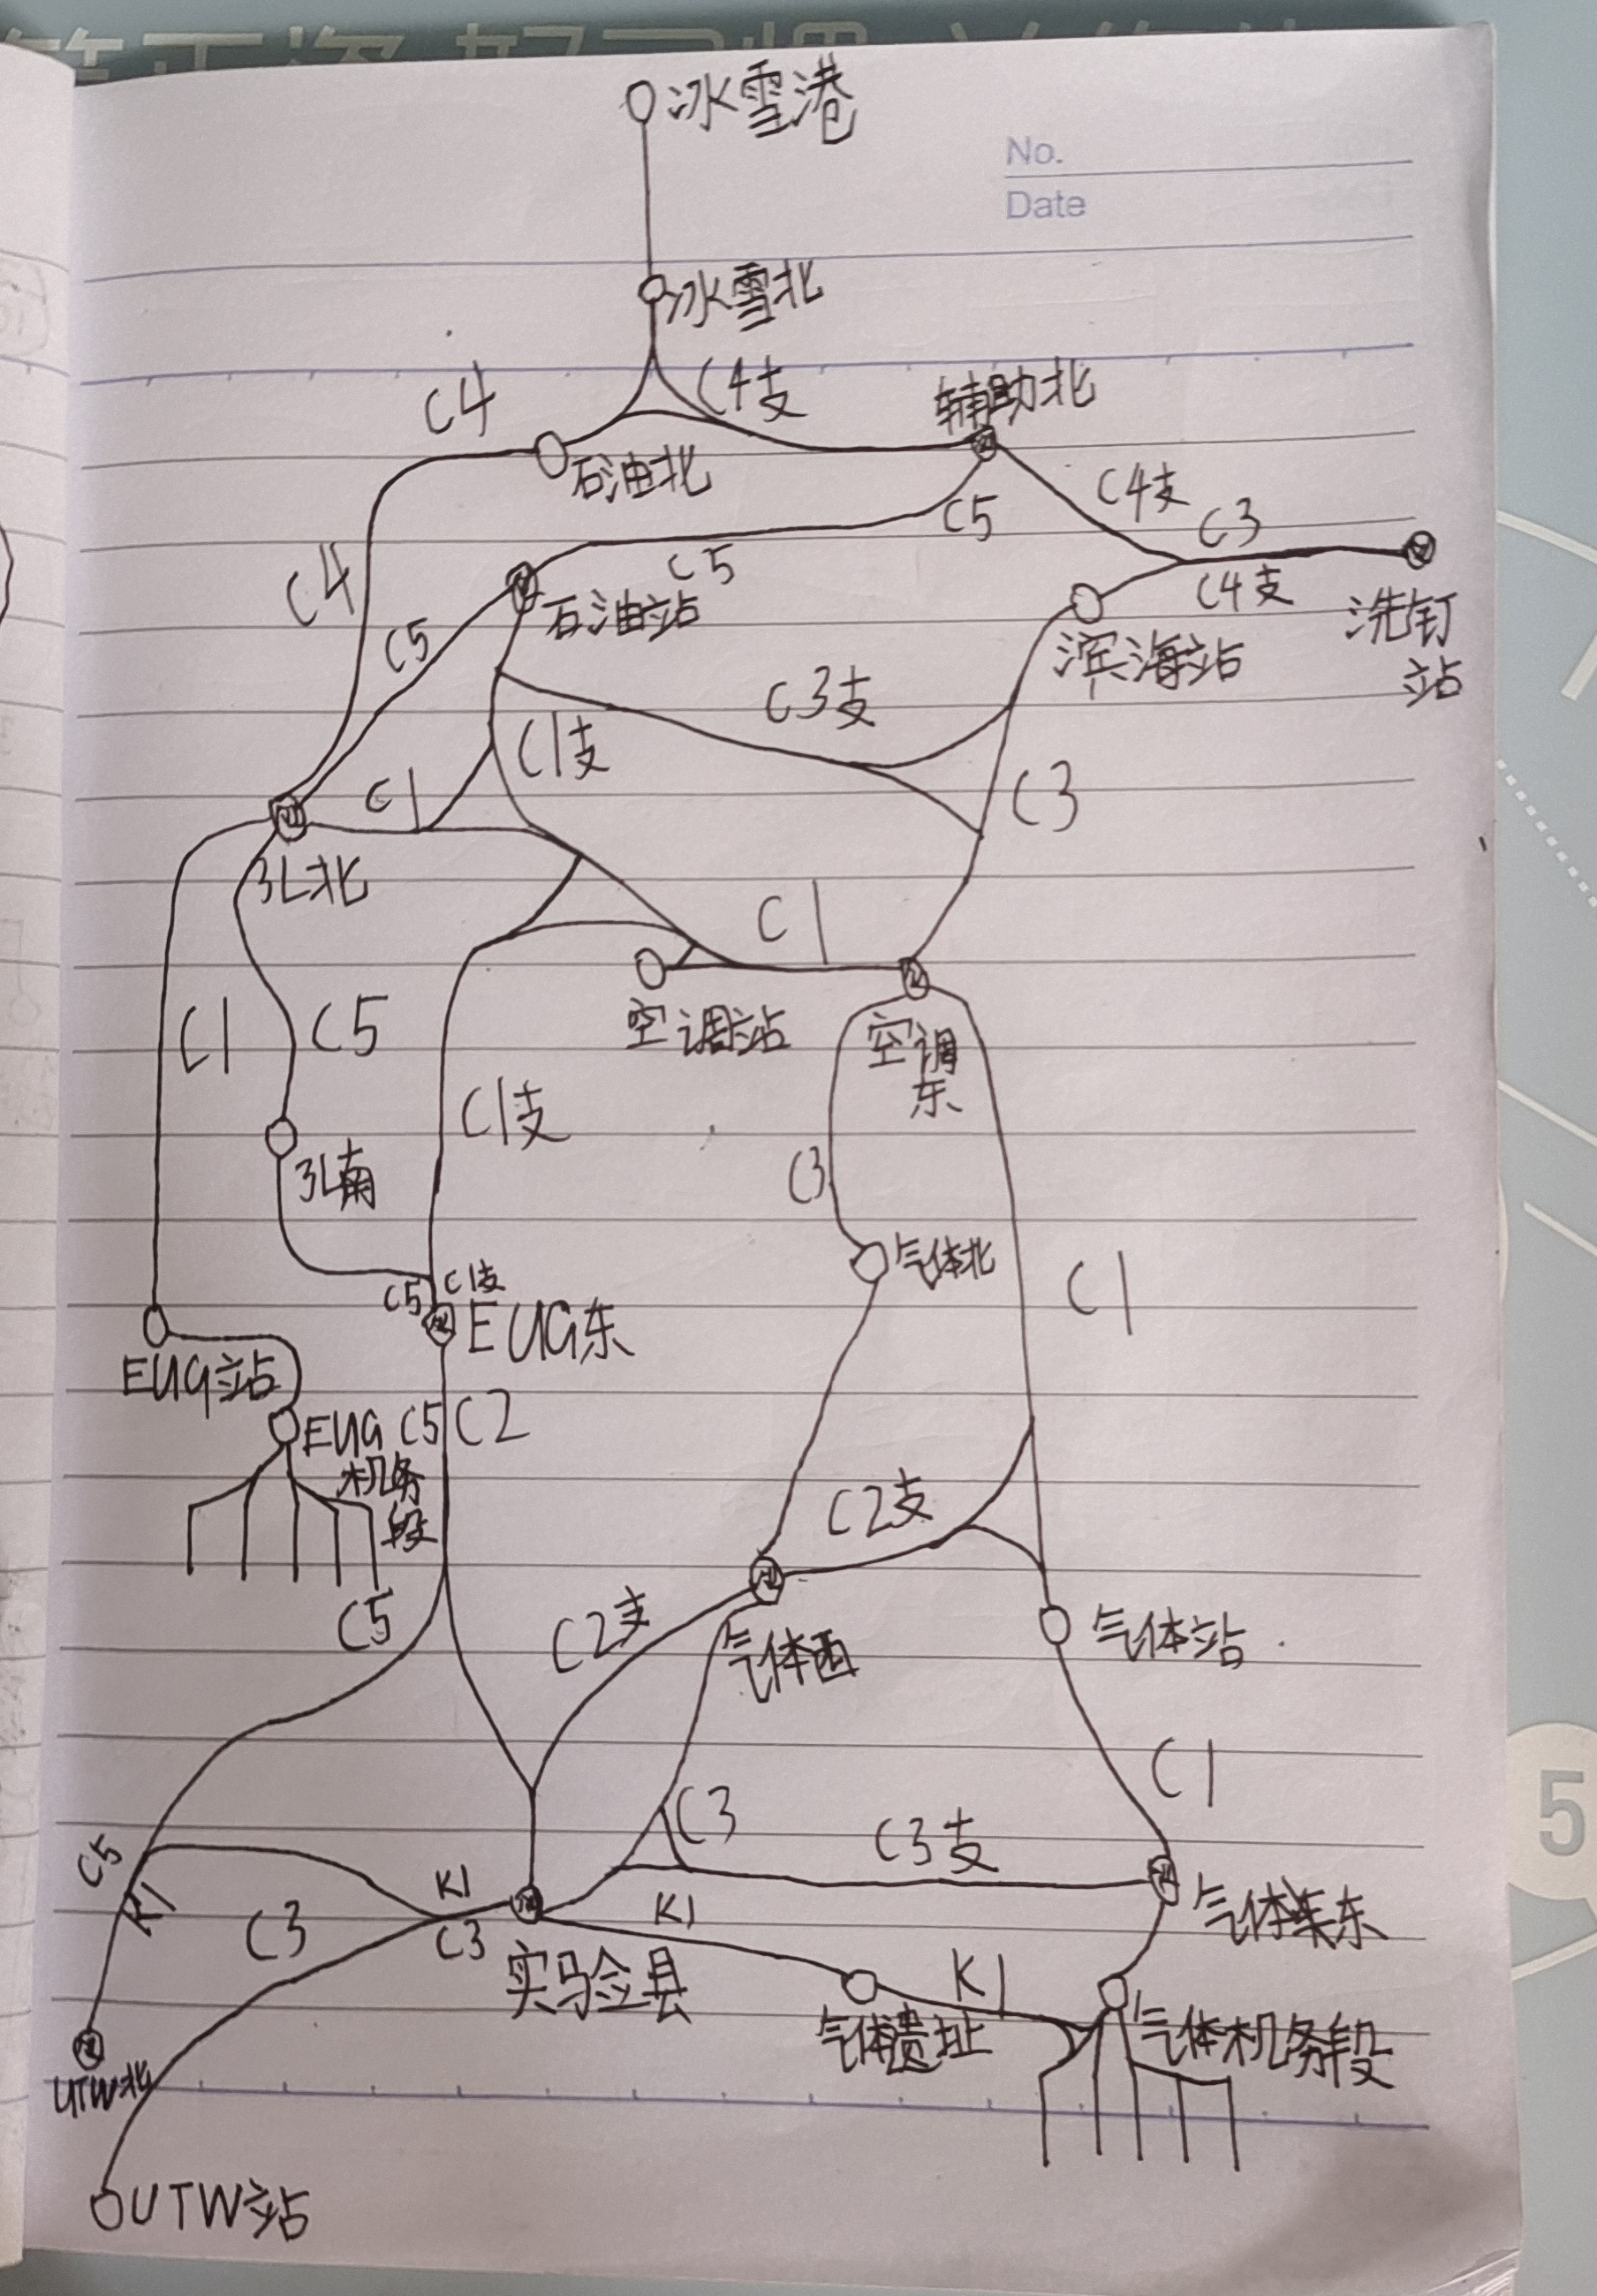 冰雪港
No.
Date
冰雪北
C4
C4支
辅助北
石油北
C4支
C5
C3
C5
C4支
C4
石油站
洗钉
站
C5
滨海站
C3支
C1支
C1
C3
3L北
C1
空调站
空调
东
C1
C5
C1支
3L南
C3
气体北
C5
C1支
C1
EUG东
EUG站
C5
C2
EUG
机务
段
C2支
C5
C2支
气体西
气体站
C1
C3
C3支
C5
K1
K1
K1
C3
C3
气体东
实验县
K1
气体遗址
气体机务段
UTW北
UTW站
5